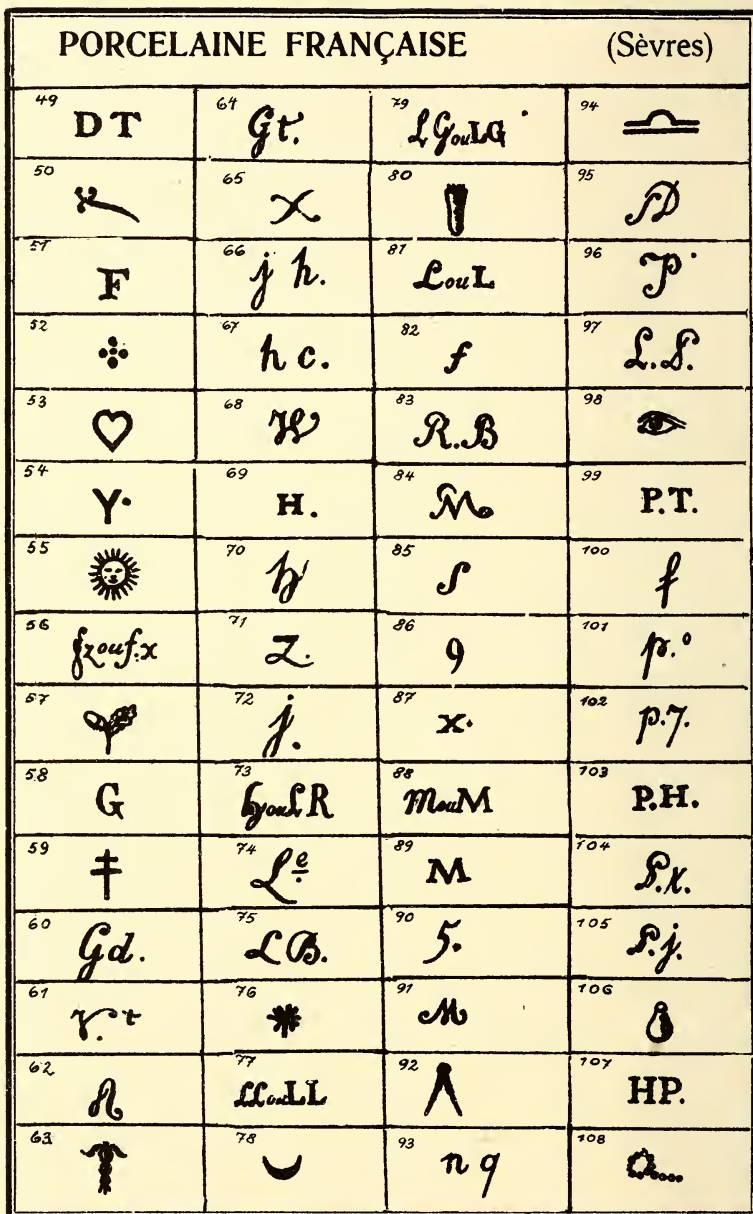 PORCELAINE FRANÇAISE (Sèvres)
49 DT 64 Gt. 79 LG ou LG 94
50 65 x 80 95 SD
51 F 66 j h. 81 L ou L 96 P
52 67 h c. 82 f 97 L.S.
53 68 W 83 R.B 98
54 Y. 69 H. 84 M 99 P.T.
55 70 h 85 S 100 f
56 fz ou f:x 71 Z. 86 9 101 p.o
57 72 j. 87 x. 102 p.7.
58 G 73 hy ou L R 88 m ou M 103 P.H.
59 74 Le 89 M 104 P.K.
60 Gd. 75 LB. 90 5. 105 P.j.
61 r.t 76 91 M 106
62 77 LL ou LL 92 107 HP.
63 78 93 n q 108